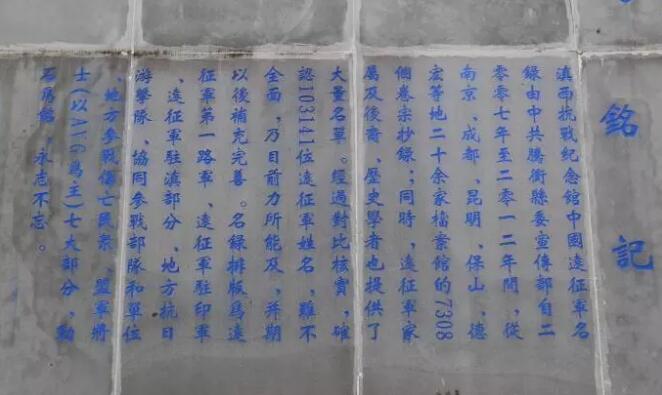 銘記
滇西抗戰紀念館中國遠征軍名
錄由中共騰衝縣委宣傳部自二
零零七年至二零一二年間，從
南京、成都、昆明、保山、德
宏等地二十余家檔案館的7308
個卷宗抄錄；同時，遠征軍家
屬及後裔，歷史學者也提供了
大量名單。經過對比核實，確
認103141位遠征軍姓名，雖不
全面，乃目前力所能及，并期
以後補充完善。名錄排版爲遠
征軍第一路軍、遠征軍駐印軍
、遠征軍駐滇部分、地方抗日
游擊隊、協同參戰部隊和單位
、地方參戰傷亡民衆、盟軍將
士(以AVG爲主)七大部分，勒
石爲銘，永志不忘。